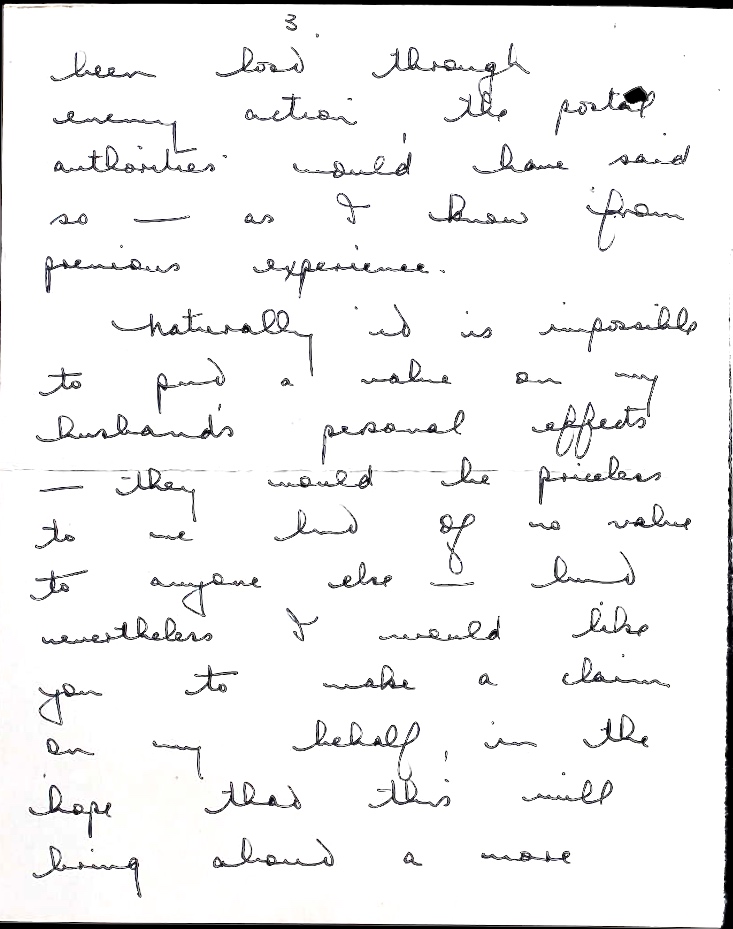 3.
been lost through
enemy action, the postal
authorities would have said
so — as I know from
previous experience.
Naturally it is impossible
to put a value on my
husband's personal effects
— they would be priceless
to me but of no value
to anyone else — but
nevertheless I would like
you to make a claim
on my behalf, in the
hope that this will
bring about a more